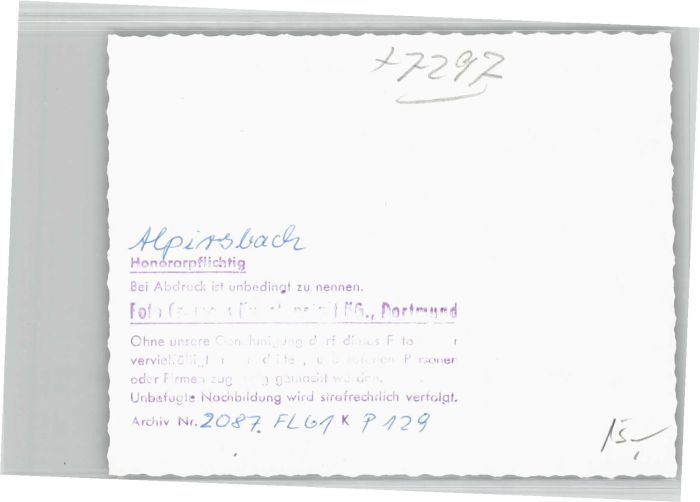 +7297
Alpirsbach
Honorarpflichtig
Bei Abdruck ist unbedingt zu nennen.
Foto KG., Dortmund
Ohne unsere Genehmigung darf dieses Foto
vervielfältigt Personen
oder Firmen zugängig gemacht werden.
Unbefugte Nachbildung wird strafrechtlich verfolgt.
Archiv Nr. 2087. FL61 K P 129
15,-